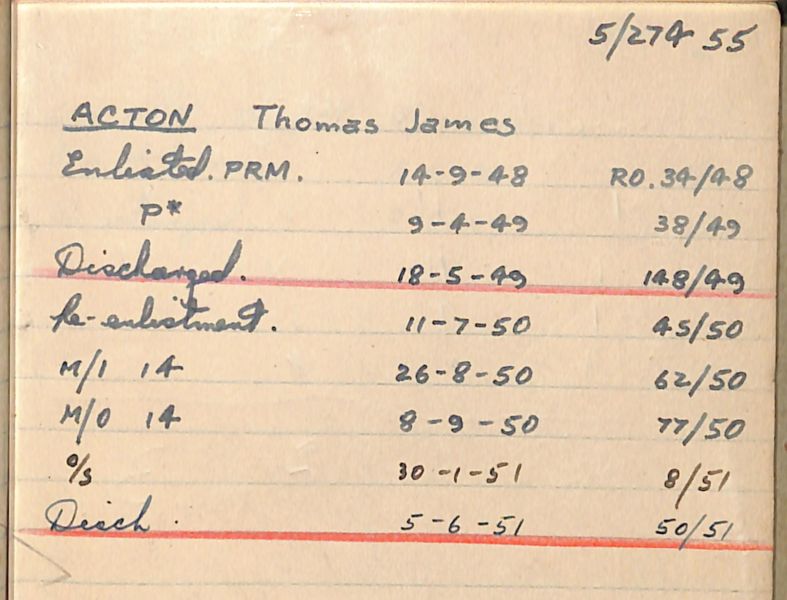 5/274 55
ACTON Thomas James
Enlisted. PRM. 14-9-48 RO. 34/48
P* 9-4-49 38/49
Discharged. 18-5-49 148/49
Re-enlistment. 11-7-50 45/50
M/I 14 26-8-50 62/50
M/O 14 8-9-50 77/50
o/s 30-1-51 8/51
Disch. 5-6-51 50/51